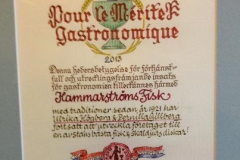 Pour le Mérite
Gastronomique
2013
Denna hedersbetygelse för förtjänst-
full och utvecklingsfrämjande insats
för gastronomien tillerkännes härmed
Hammarströms Fisk
med traditioner sedan år 1921 har
Ulrika Högberg & Pernilla
fortsatt att utveckla företaget till
en av stans bästa fisk & skaldjurs diskar!